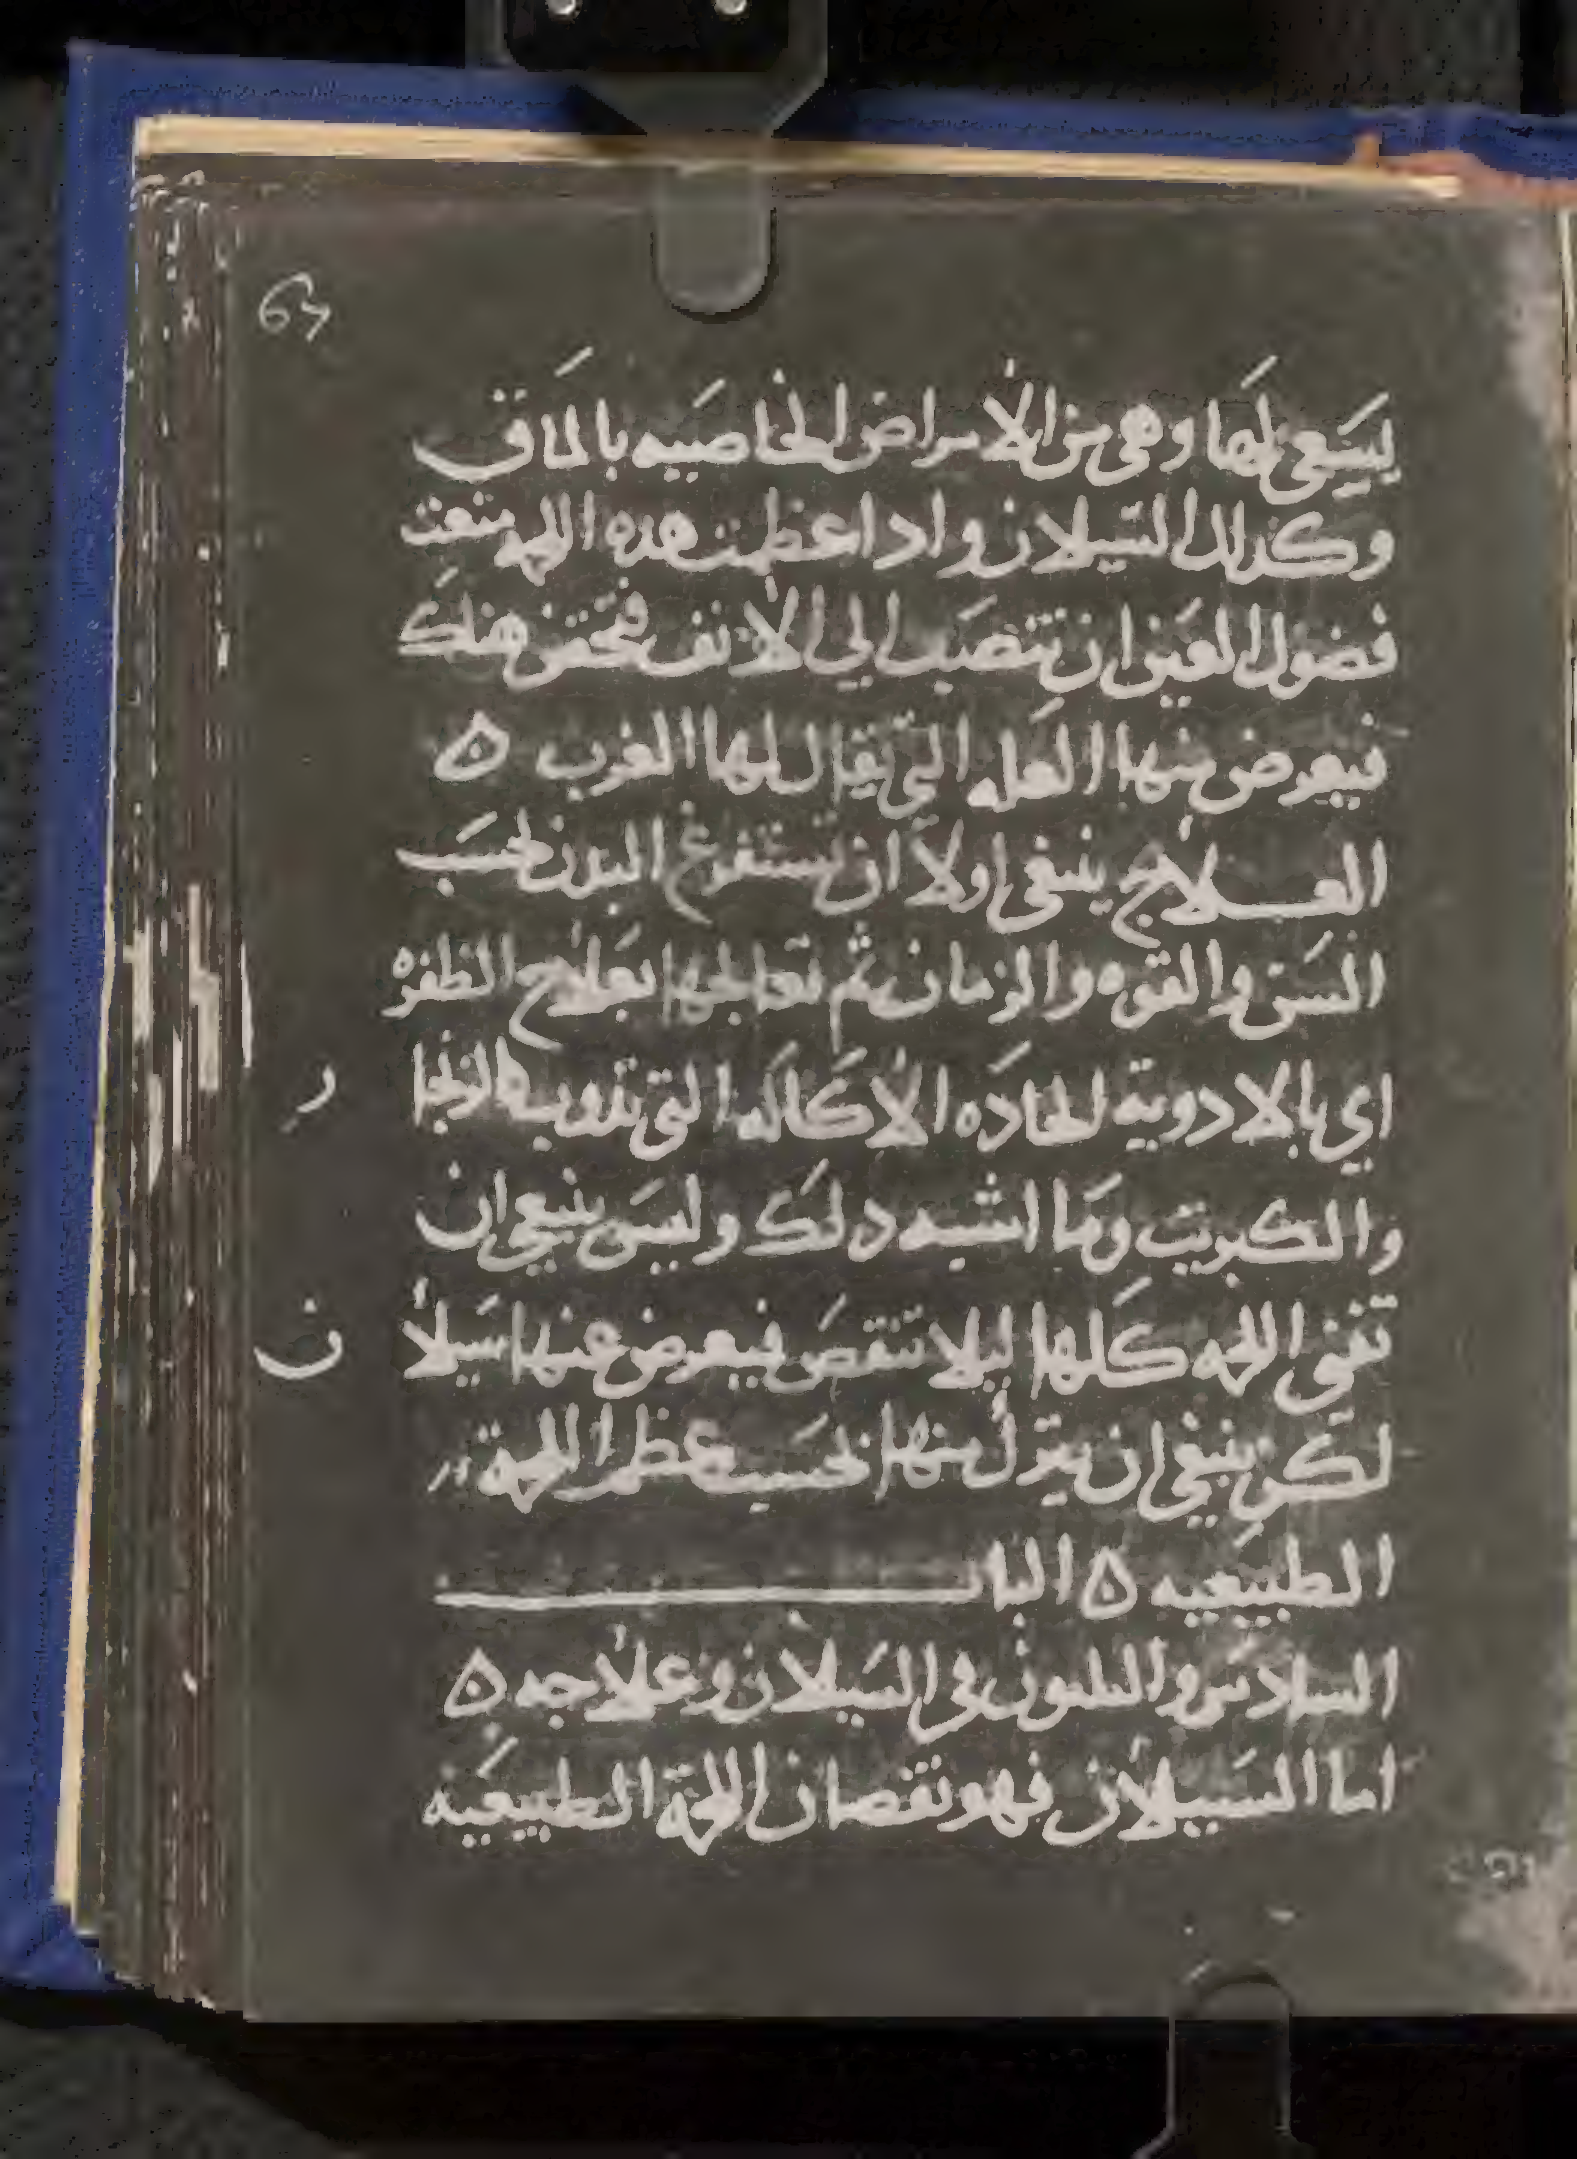 63
ينبغي لها وهي من الأمراض الخاصيه بالماق
وكذلك السيلان واذا عظمت هذه اللحمه منعت
فضول العين ان تنصب الي الانف فتحتقن هناك
فيعرض منها العله التي يقال لها الغرب ه
العلاج ينبغي اولا ان تستفرغ البدن بحسب
السن والقوه والزمان ثم تعالجها بعلاج الظفره
اي بالادوية الحاده الأكاله التي تذوب كالزنجا ر
والكبريت وما اشبه دلك وليس ينبغي ان
تفني اللحمه كلها ليلا تنقص فيعرض عنها سيلا ن
لكن ينبغي ان يترك منها بحسب عظم اللحمة
الطبيعيه ه الباب
السادس والثلثون في السيلان وعلاجه ه
اما السيلان فهو نقصان اللحمة الطبيعية